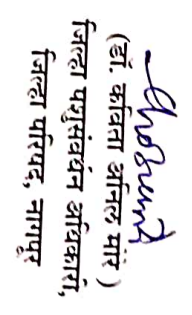 (डॉ. कविता अनिल मोरे)
जिल्हा पशुसंवर्धन अधिकारी,
जिल्हा परिषद, नागपूर